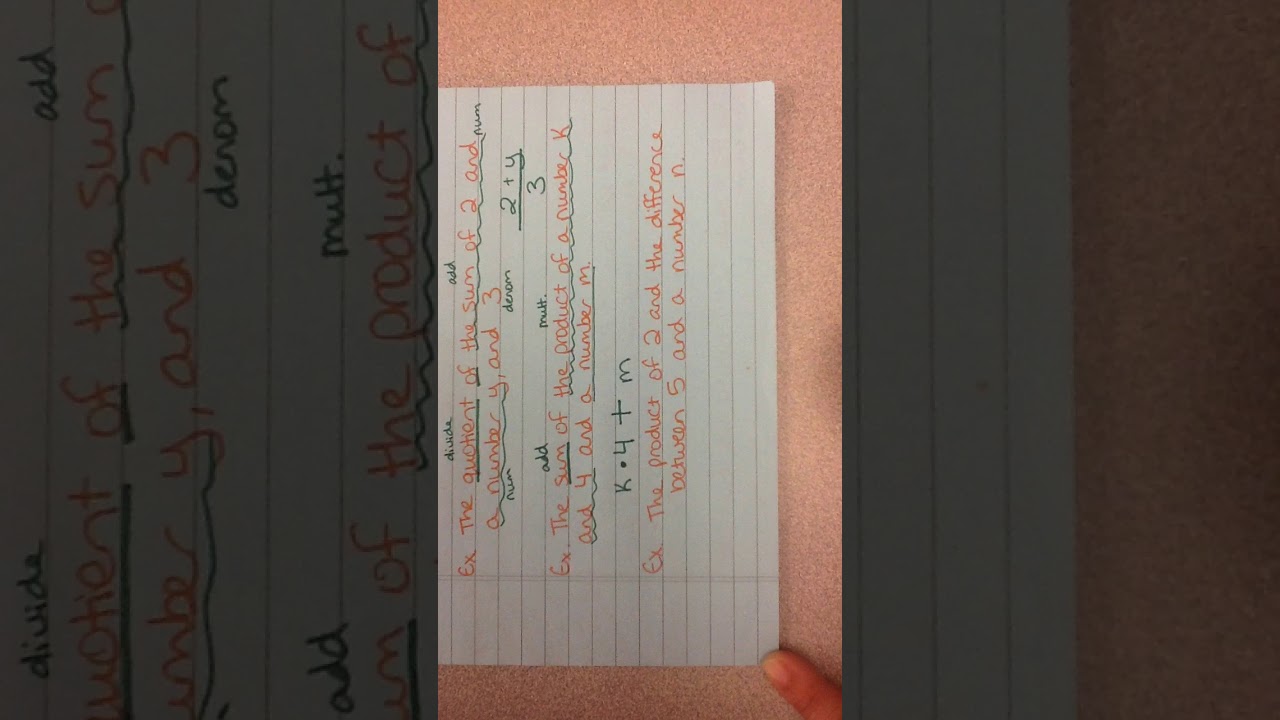 divide add
Ex. The quotient of the sum of 2 and num
a number y, and 3
num denom
2 + y
3
add mult.
Ex. The sum of the product of a number K
and 4 and a number m.
K • 4 + m
Ex. The product of 2 and the difference
between 5 and a number n.